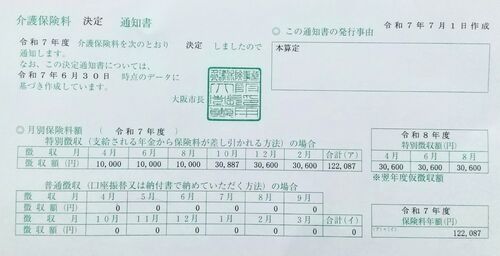 介護保険料 決定 通知書
令和7年7月1日作成
令和7年度 介護保険料を次のとおり 決定 しましたので
通知します。
なお、この決定通知書については、
令和7年6月30日 時点のデータに
基づき作成しています。
大阪市長
○この通知書の発行事由
本算定
○月別保険料額 ( 令和7年度 )
特別徴収(支給される年金から保険料が差し引かれる方法)の場合
徴収月 4月 6月 8月 10月 12月 2月 合計(ア)
徴収額(円) 10,000 10,000 10,000 30,887 30,600 30,600 122,087
令和8年度
特別徴収額(円)
4月 6月 8月
30,600 30,600 30,600
※翌年度仮徴収額
普通徴収(口座振替又は納付書で納めていただく方法)の場合
徴収月 4月 5月 6月 7月 8月 9月
徴収額(円) 0 0 0 0 0 0
徴収月 10月 11月 12月 1月 2月 3月 合計(イ)
徴収額(円) 0 0 0 0 0 0 0
令和7年度
保険料年額(円)
(ア)+(イ) 122,087